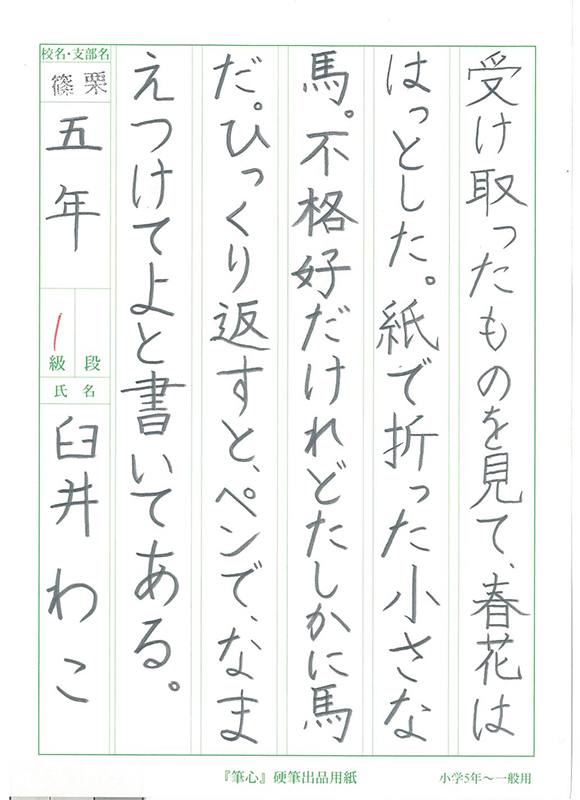 受け取ったものを見て、春花は
はっとした。紙で折った小さな
馬。不格好だけれどたしかに馬
だ。ひっくり返すと、ペンで、なま
えつけてよと書いてある。
校名・支部名
篠栗
五年
1
級 段
氏名
臼井わこ
『筆心』硬筆出品用紙
小学5年〜一般用